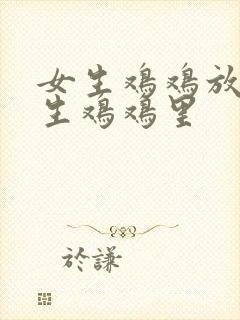 女生鸡鸡放
生鸡鸡里
於謙